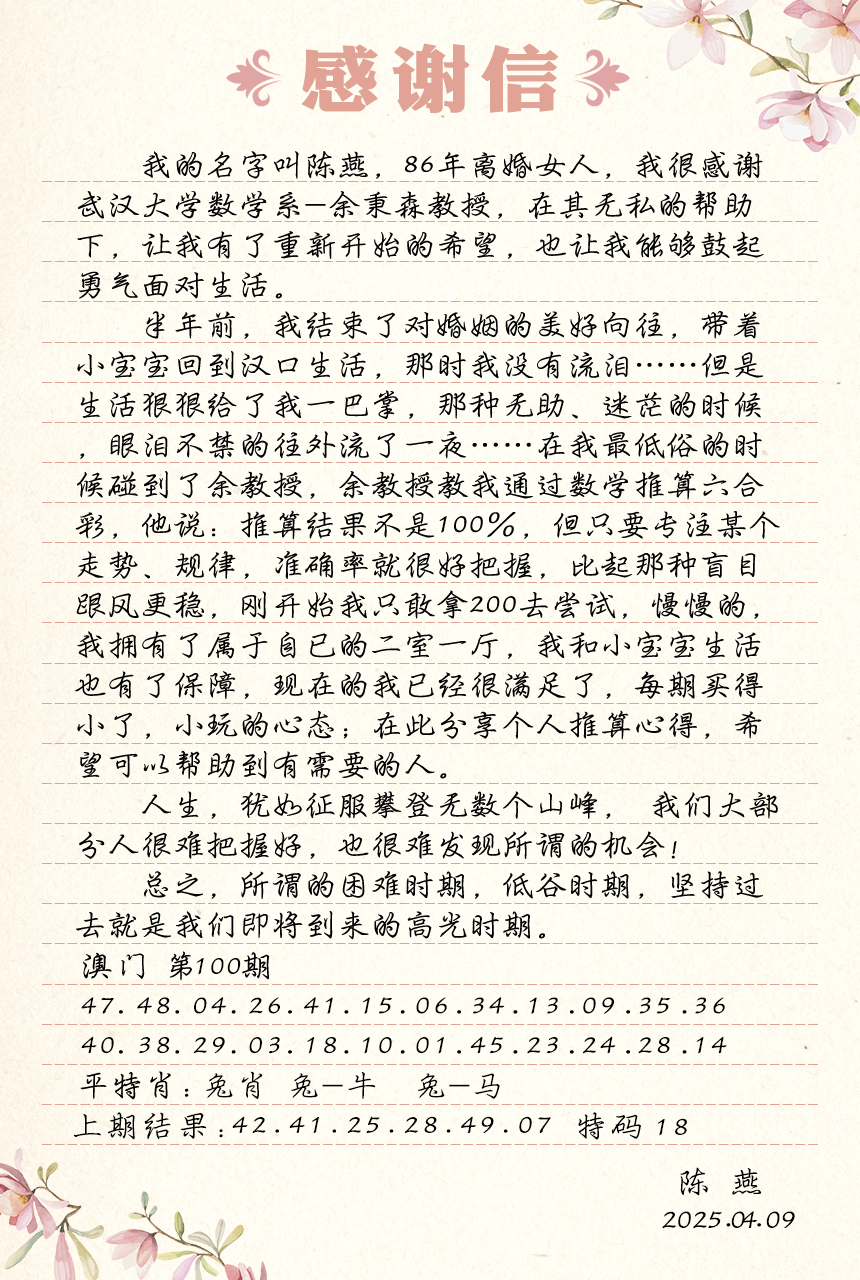 感谢信
我的名字叫陈燕，86年离婚女人，我很感谢
武汉大学数学系—余秉森教授，在其无私的帮助
下，让我有了重新开始的希望，也让我能够鼓起
勇气面对生活。
半年前，我结束了对婚姻的美好向往，带着
小宝宝回到汉口生活，那时我没有流泪……但是
生活狠狠给了我一巴掌，那种无助、迷茫的时候
，眼泪不禁的往外流了一夜……在我最低俗的时
候碰到了余教授，余教授教我通过数学推算六合
彩，他说：推算结果不是100%，但只要专注某个
走势、规律，准确率就很好把握，比起那种盲目
跟风更稳，刚开始我只敢拿200去尝试，慢慢的，
我拥有了属于自已的二室一厅，我和小宝宝生活
也有了保障，现在的我已经很满足了，每期买得
小了，小玩的心态；在此分享个人推算心得，希
望可以帮助到有需要的人。
人生，犹如征服攀登无数个山峰， 我们大部
分人很难把握好，也很难发现所谓的机会！
总之，所谓的困难时期，低谷时期，坚持过
去就是我们即将到来的高光时期。
澳门 第100期
47.48.04.26.41.15.06.34.13.09.35.36
40.38.29.03.18.10.01.45.23.24.28.14
平特肖：兔肖 兔—牛 兔—马
上期结果：42.41.25.28.49.07 特码18
陈 燕
2025.04.09